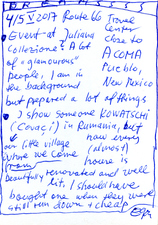 DREAMS
4/5 V 2017 Route 66 Travel
Center
Close to
ACOMA
Pueblo,
New Mexico
Event at Juliana
Collezione? A lot
of "glamourous"
people, I am in
the background
but prepared a lot of things
I show someone KOWATSCHI
(Covaci) in Rumania, but
our little village now every
where we come (almost)
from house is
beautifully renovated and well
lit, I should have
bought one when they were
still run down + cheap